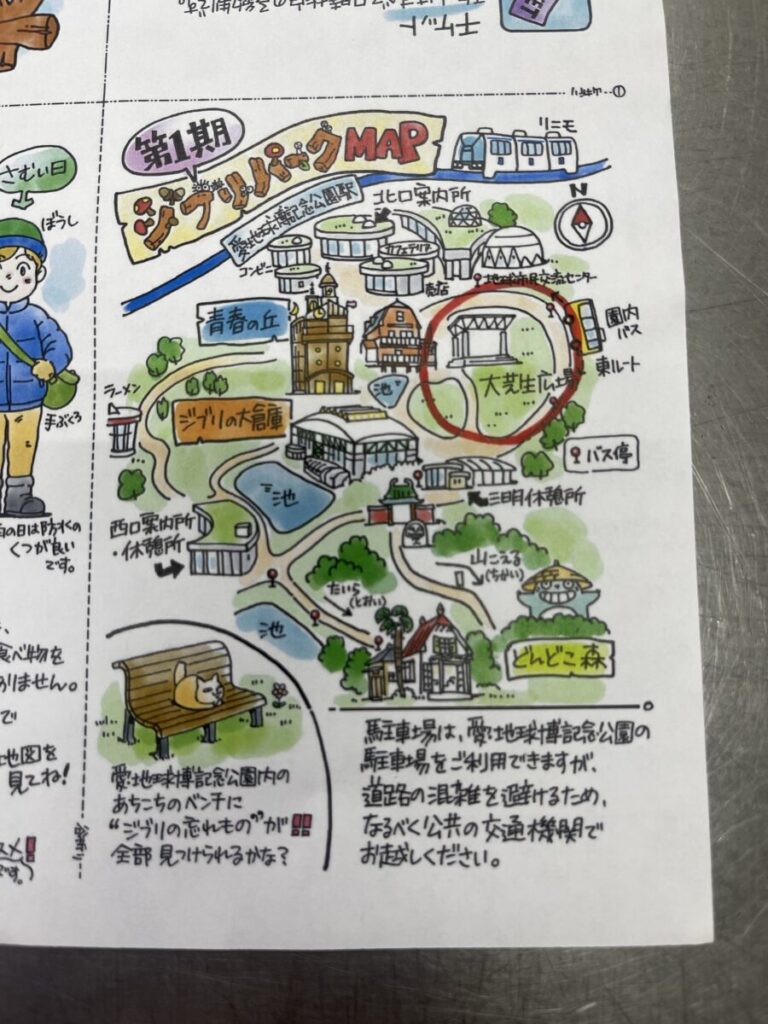 チケット
さむい日
ぼうし
手ぶくろ
の日は防水の
くつが良い
です。
食べ物を
おりません。
で
地図を
見てね!
第1期
ジブリパークMAP
リニモ
愛・地球博記念公園駅
北口案内所
N
コンビニ
カフェテリア
売店
地球市民交流センター
青春の丘
園内
バス
東ルート
大芝生広場
池
ラーメン
ジブリの大倉庫
バス停
池
三日月休憩所
西口案内所
・休憩所
山こえる
(ちかい)
たいら
(とおい)
池
どんどこ森
愛・地球博記念公園内の
あちこちのベンチに
“ジブリの忘れもの”が!!
全部見つけられるかな?
駐車場は、愛・地球博記念公園の
駐車場をご利用できますが、
道路の混雑を避けるため、
なるべく公共の交通機関で
お越しください。